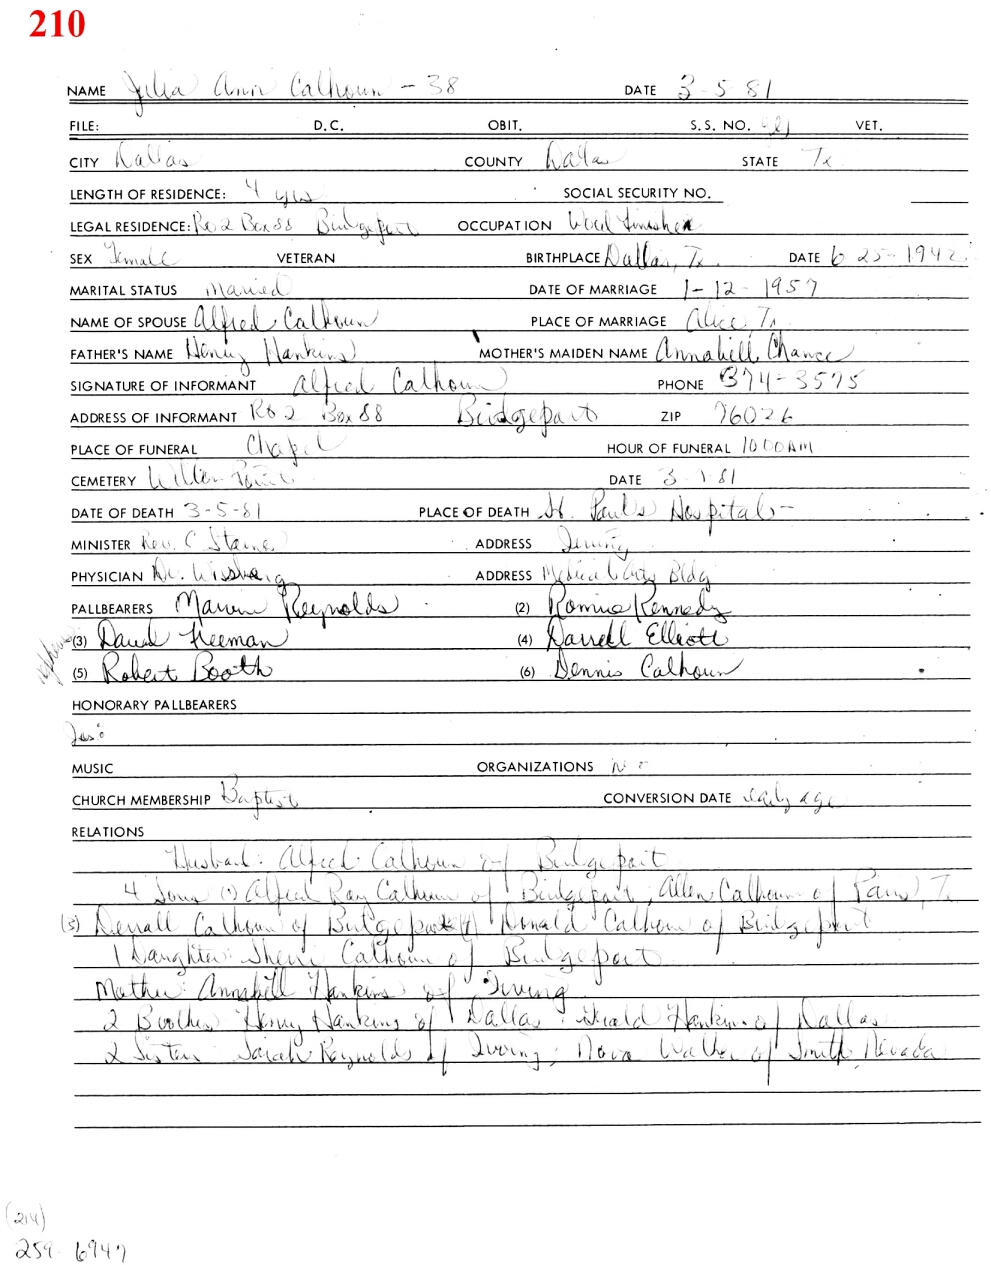 210
NAME Julia Ann Calhoun - 38 DATE 3-5-81
FILE: D.C. OBIT. S.S. NO. VET.
CITY Dallas COUNTY Dallas STATE Tx
LENGTH OF RESIDENCE: 4 yrs SOCIAL SECURITY NO.
LEGAL RESIDENCE: Ro 2 Box 88 Bridgeport OCCUPATION Wood Finisher
SEX Female VETERAN BIRTHPLACE Dallas, Tx DATE 6-25-1942
MARITAL STATUS Married DATE OF MARRIAGE 1-12-1957
NAME OF SPOUSE Alfred Calhoun PLACE OF MARRIAGE Alice, Tx
FATHER'S NAME Henry Hankins MOTHER'S MAIDEN NAME Annabell Chance
SIGNATURE OF INFORMANT Alfred Calhoun PHONE 374-3575
ADDRESS OF INFORMANT Ro 2 Box 88 Bridgeport ZIP 76026
PLACE OF FUNERAL Chapel HOUR OF FUNERAL 10:00AM
CEMETERY DATE 3- -81
DATE OF DEATH 3-5-81 PLACE OF DEATH St. Paul's Hospital -
MINISTER Rev. C ADDRESS Irving
PHYSICIAN Dr. ADDRESS Medical City Bldg
PALLBEARERS Marvin Reynolds (2) Ronnie Kennedy
(3) David Freeman (4) Darrell Elliott
(5) Robert Booth (6) Dennis Calhoun
HONORARY PALLBEARERS
MUSIC ORGANIZATIONS
CHURCH MEMBERSHIP Baptist CONVERSION DATE early age
RELATIONS
Husband: Alfred Calhoun of Bridgeport
4 Sons (1) Alfred Ray Calhoun of Bridgeport, Allen Calhoun of Paris, Tx
(3) Derrall Calhoun of Bridgeport (4) Donald Calhoun of Bridgeport
1 Daughter: Sherri Calhoun of Bridgeport
Mother: Annabell Hankins of Irving
2 Brothers Henry Hankins of Dallas; Gerald Hankins of Dallas
2 Sisters Sarah Reynolds of Irving; Nova Walker of Smith, Nevada
(214)
259-6947